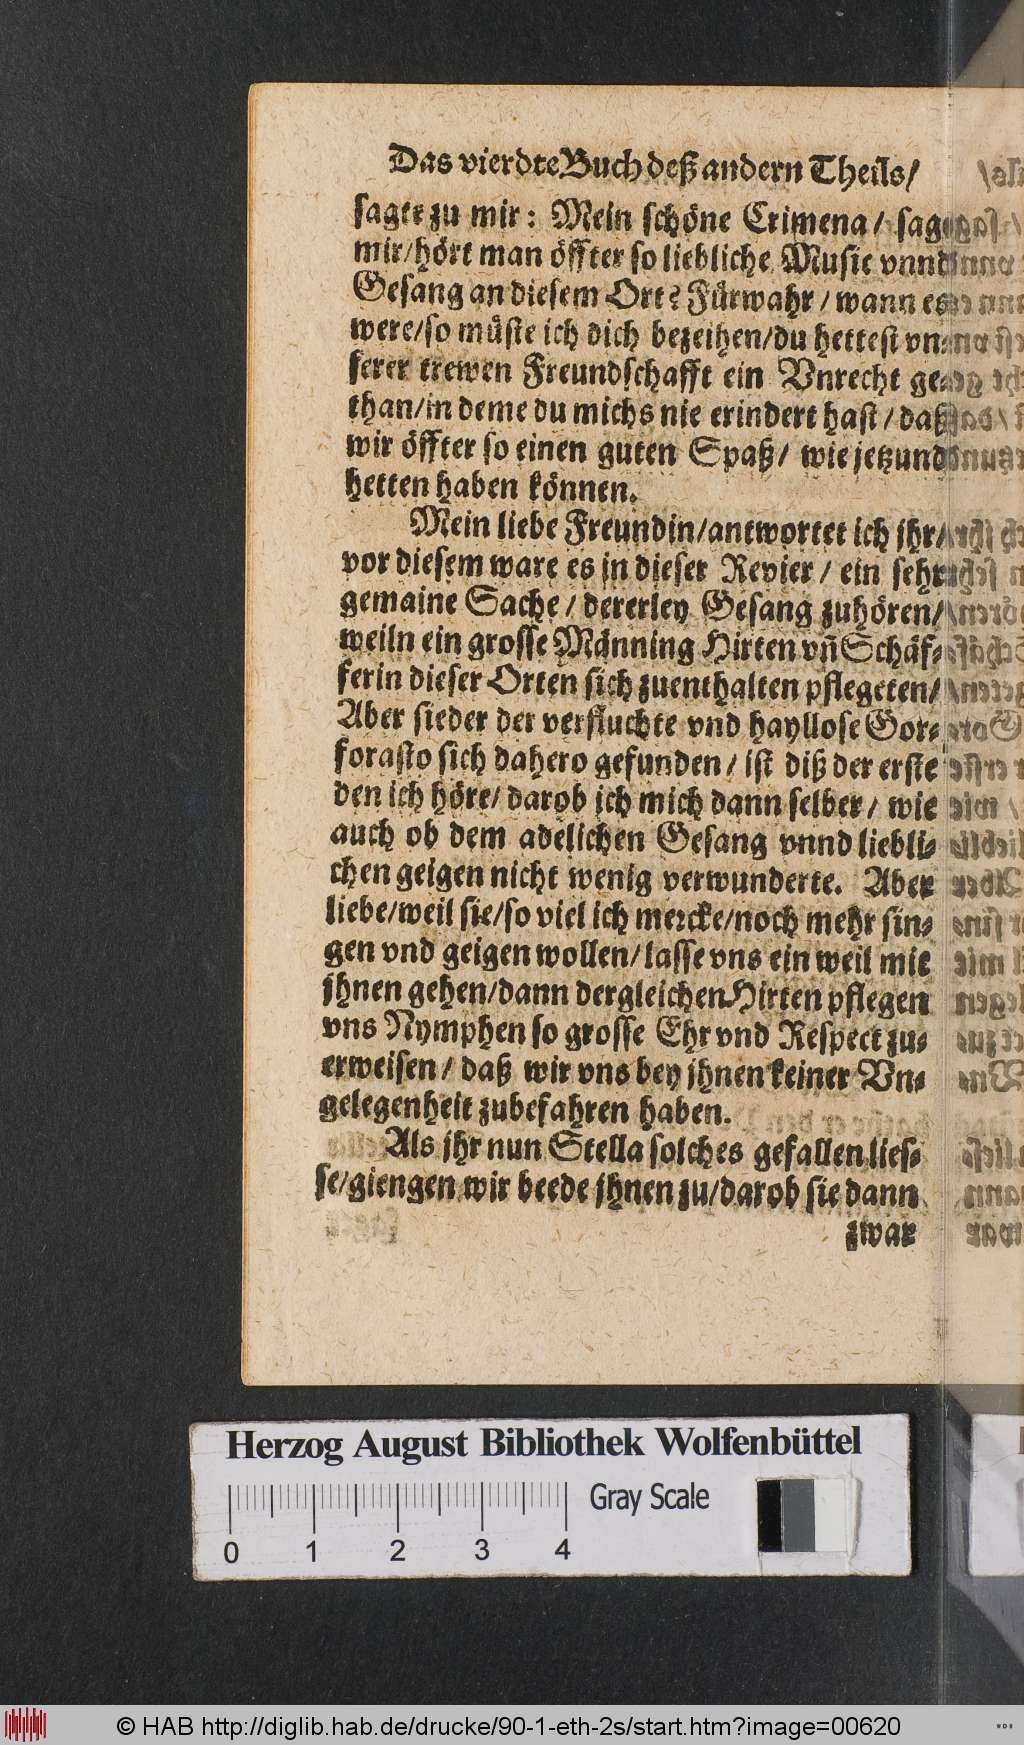 Das vierdte Buch deß andern Theils/
sagte zu mir: Mein schöne Crimena / sag
mir/hört man öffter so liebliche Music vnnd
Gesang an diesem Ort? Fürwahr / wann es
were/so müste ich dich bezeihen/du hettest vn-
serer trewen Freundschafft ein Vnrecht ge-
than/in deme du michs nie erindert hast / daß
wir öffter so einen guten Spaß/ wie jetzund
hetten haben können.
Mein liebe Freundin/antwortet ich jhr/
vor diesem ware es in dieser Revier / ein sehr
gemaine Sache / dererley Gesang zuhören/
weiln ein grosse Männing Hirten vn̄ Schäf-
ferin dieser Orten sich zuenthalten pflegeten/
Aber sieder der verfluchte vnd hayllose Gor-
forasto sich dahero gefunden / ist diß der erste
den ich höre/ darob ich mich dann selber/ wie
auch ob dem adelichen Gesang vnnd liebli-
chen geigen nicht wenig verwunderte. Aber
liebe/weil sie/so viel ich mercke/noch mehr sin-
gen vnd geigen wollen/ lasse vns ein weil mit
jhnen gehen/dann dergleichen Hirten pflegen
vns Nymphen so grosse Ehr vnd Respect zu-
erweisen / daß wir vns bey jhnen keiner Vn-
gelegenheit zubefahren haben.
Als jhr nun Stella solches gefallen lies-
se/giengen wir beede jhnen zu/darob sie dann
zwar
Herzog August Bibliothek Wolfenbüttel
Gray Scale
0 1 2 3 4
© HAB http://diglib.hab.de/drucke/90-1-eth-2s/start.htm?image=00620